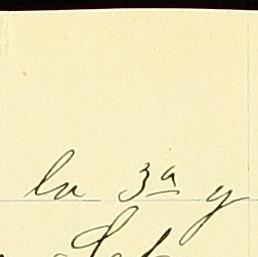 la 3ª y